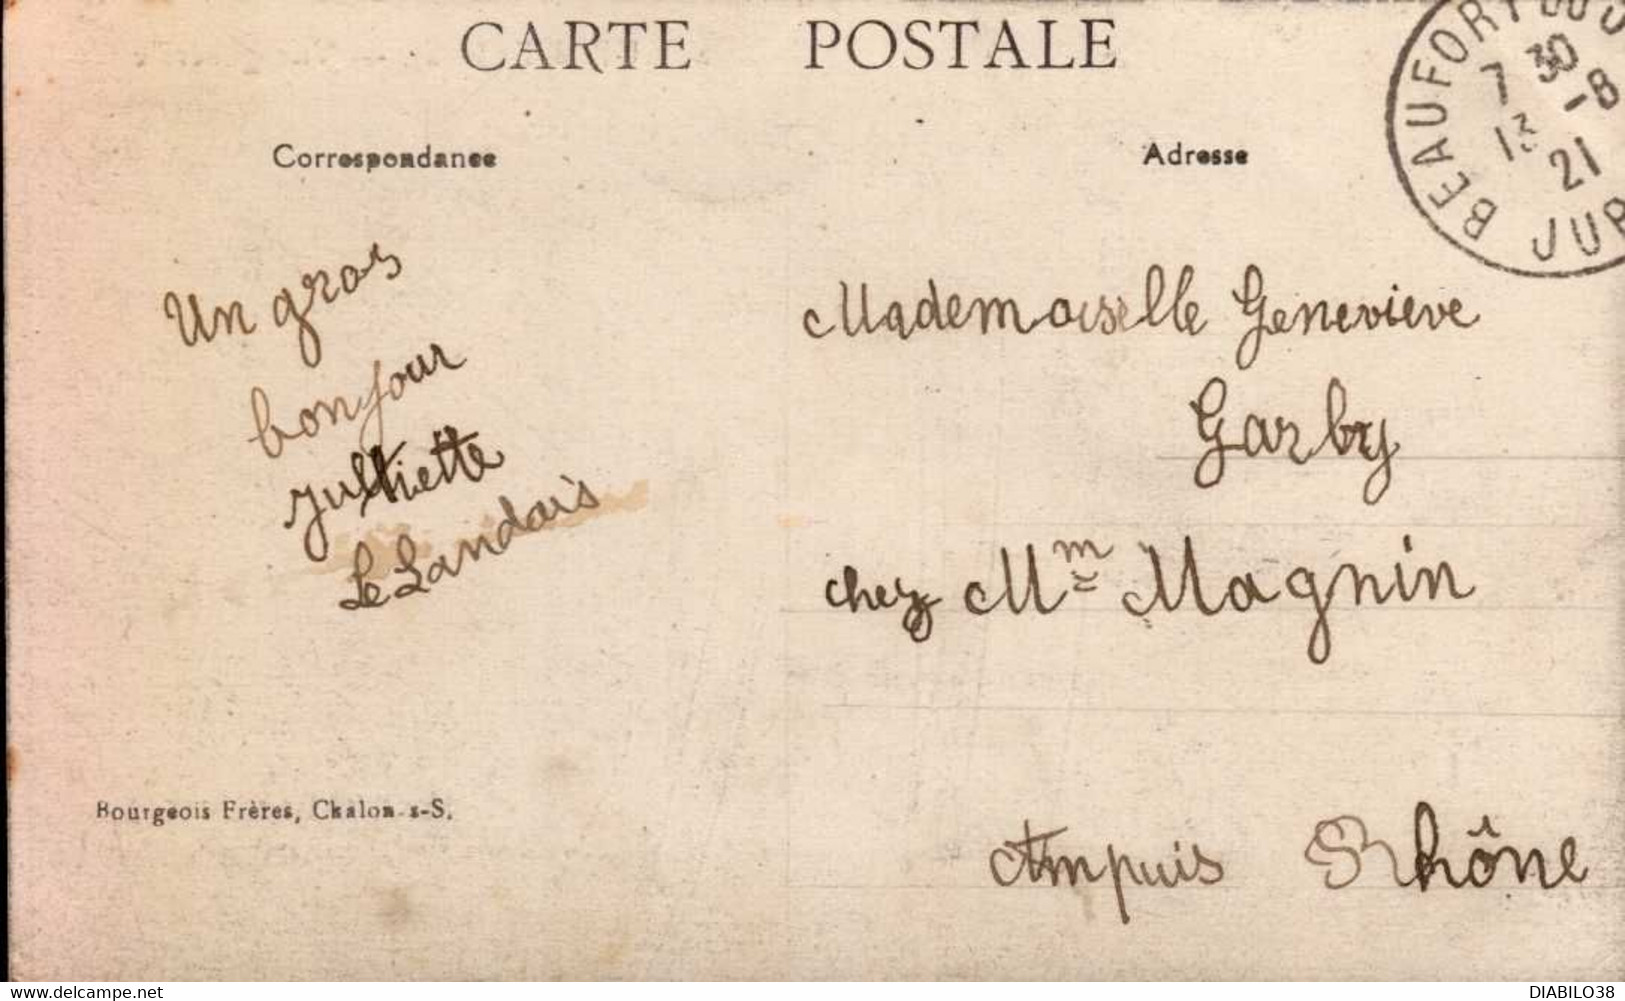 CARTE POSTALE
BEAUFORT DU J
7 30
13 -8
21
JUR
Correspondance
Adresse
Un gros
bonjour
Julliette
Le Landais
Mademoiselle Genevieve
Garby
chez Mme Magnin
Ampuis Rhône
Bourgeois Frères, Chalon-s-S.
DELCAMPE.NET
DIABILO38